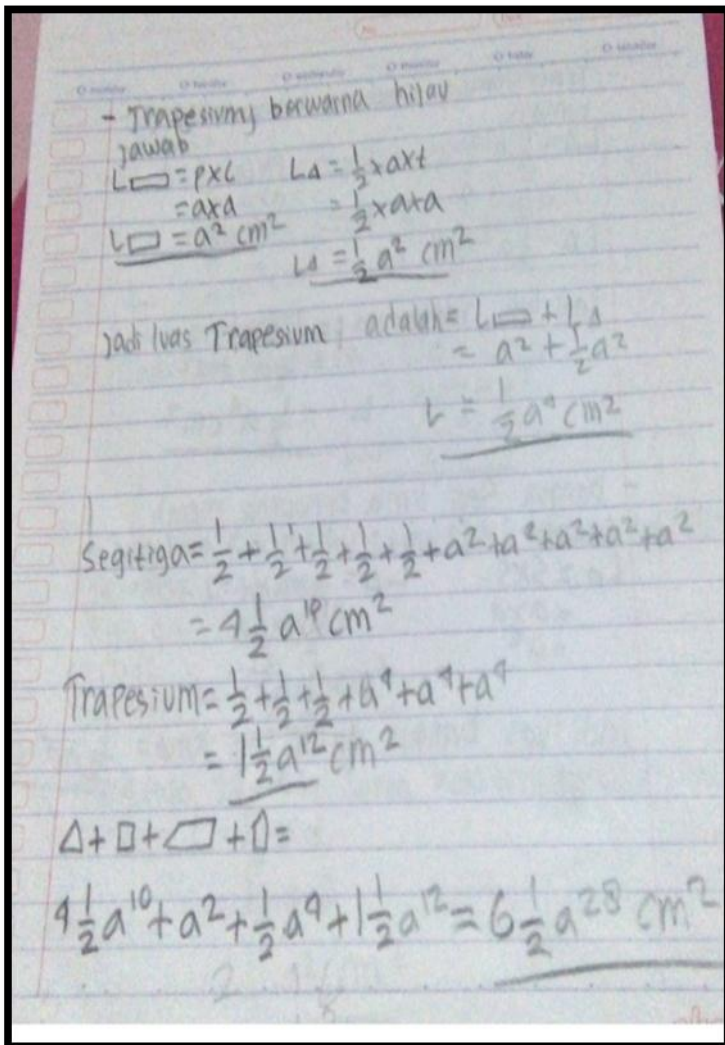 - Trapesium, berwarna hijau
Jawab
L▭ = p×l    L△ = 1/2 × a×t
= a×a    = 1/2 × a×a
L▭ = a² cm²    L△ = 1/2 a² cm²
Jadi luas Trapesium adalah = L▭ + L△
= a² + 1/2 a²
L = 1/2 a⁴ cm²
Segitiga = 1/2 + 1/2 + 1/2 + 1/2 + 1/2 + a² + a² + a² + a² + a²
= 4 1/2 a¹⁰ cm²
Trapesium = 1/2 + 1/2 + 1/2 + a⁴ + a⁴ + a⁴
= 1 1/2 a¹² cm²
△ + □ + ▱ + ⌂ =
4 1/2 a¹⁰ + a² + 1/2 a⁴ + 1 1/2 a¹² = 6 1/2 a²⁸ cm²